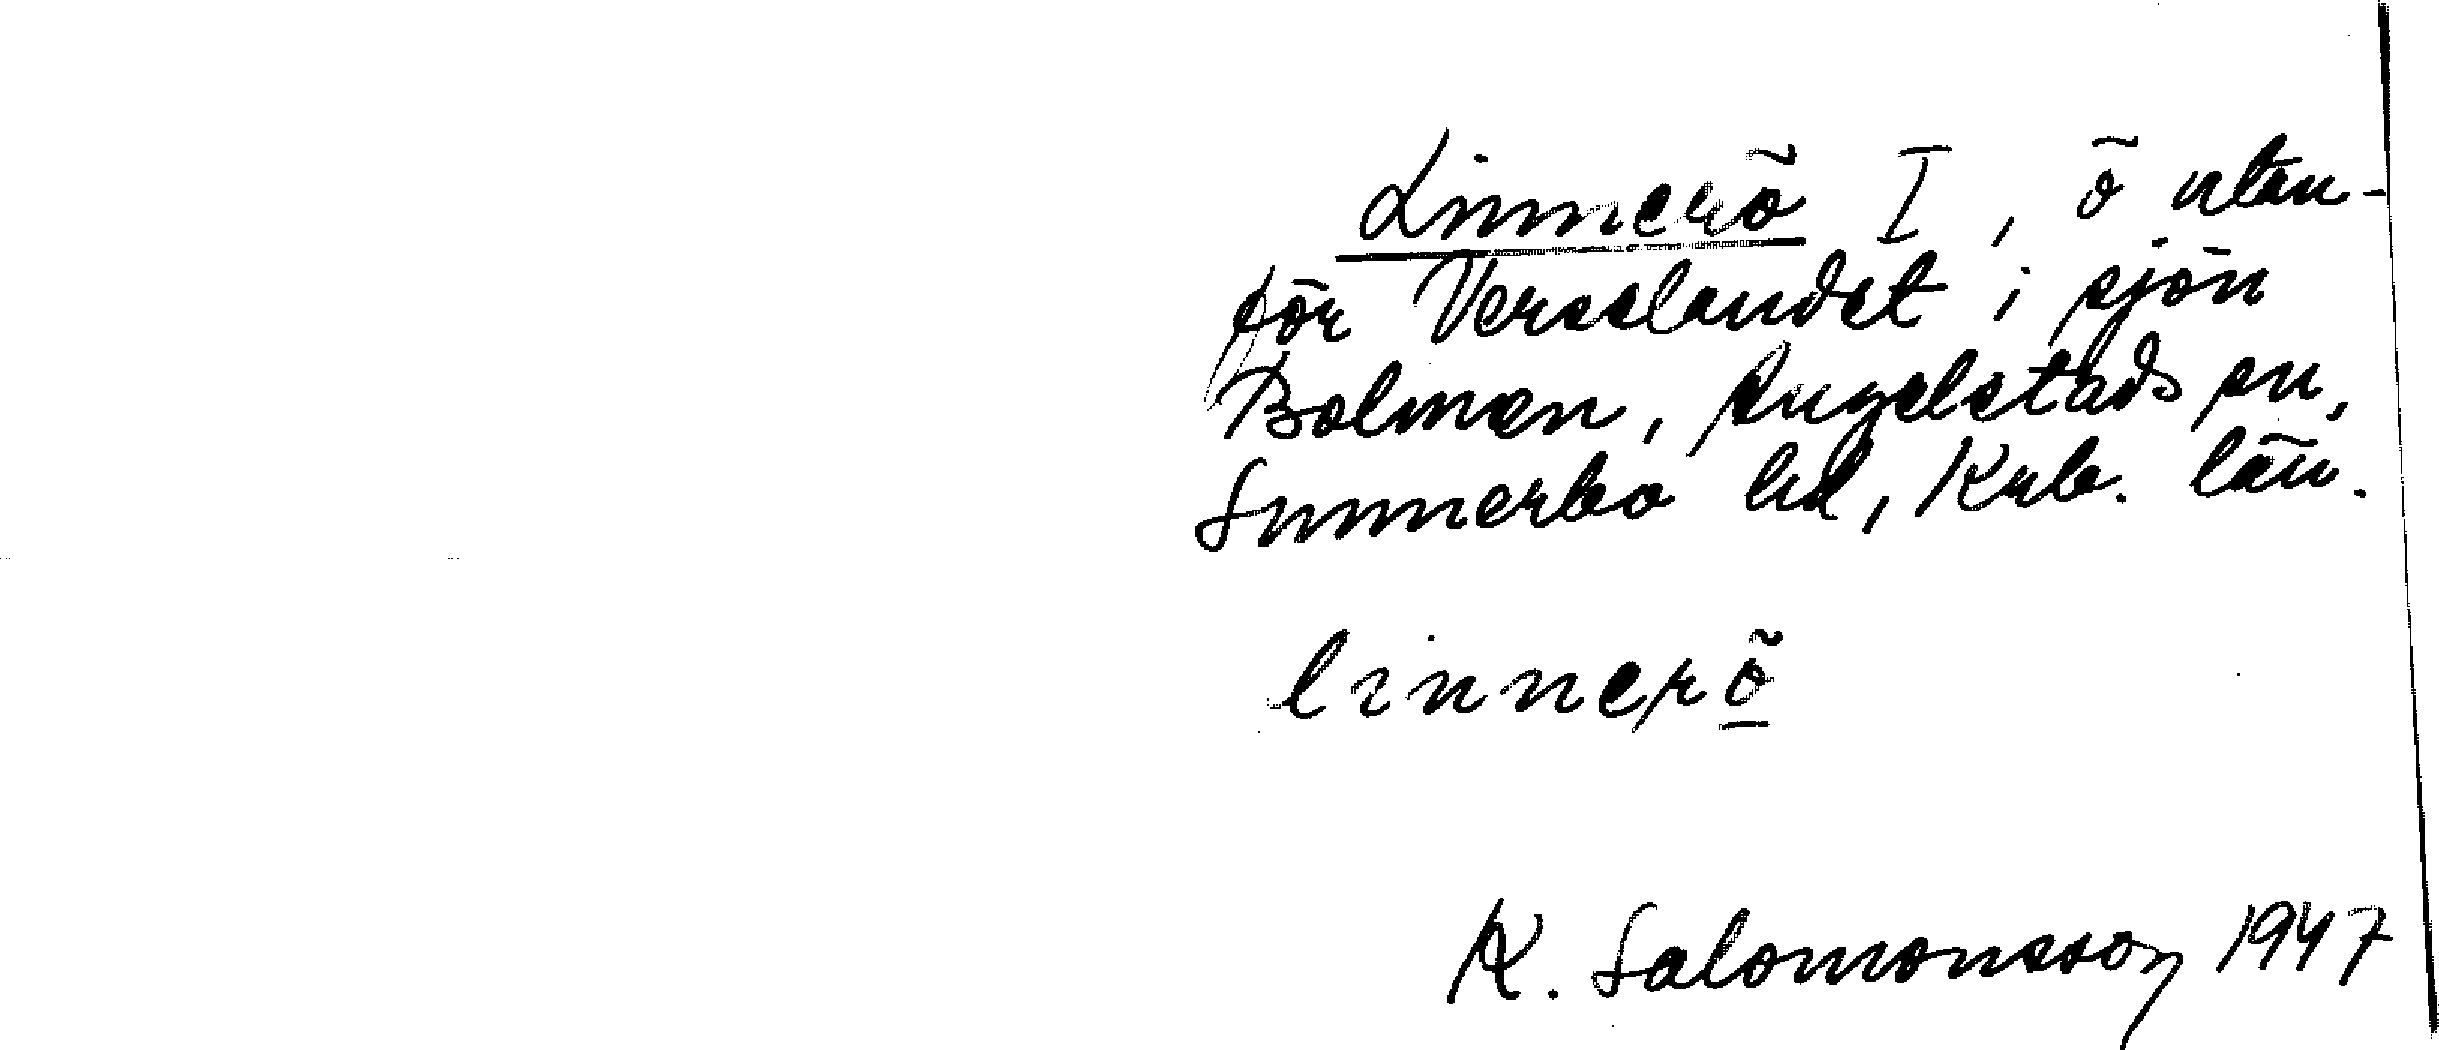 Linnerö I, ö utan-
för Versslandet i sjön
Bolmen, Angelstads sn,
Sunnerbo hd, Krb. län.
linnerö
K. Salomonsson 1947